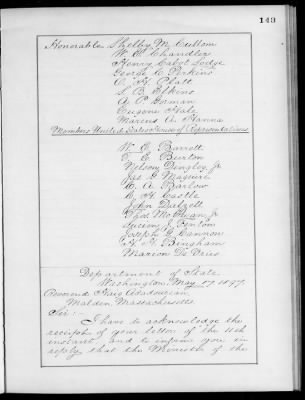 143
Honorable Shelby M. Cullom
W. E. Chandler
Henry Cabot Lodge
George C. Perkins
O. H. Platt
S. B. Elkins
A. P. Gorman
Eugene Hale
Marcus A. Hanna
Members United States House of Representatives.
W. E. Barrett
T. E. Burton
Nelson Dingley, Jr
Jas G. Maguire
C. A. Barlow
C. H. Castle
John Dalzell
Thos. McEwan, Jr
Lucien J. Fenton
Joseph G. Cannon
H. H. Bingham
Marion De Vries
Department of State,
Washington, May 17, 1897.
Reverend
Malden, Massachusetts.
Sir:-
I have to acknowledge the
receipt of your letter of the 11th
instant, and to inform you in
reply, that the Minister of the